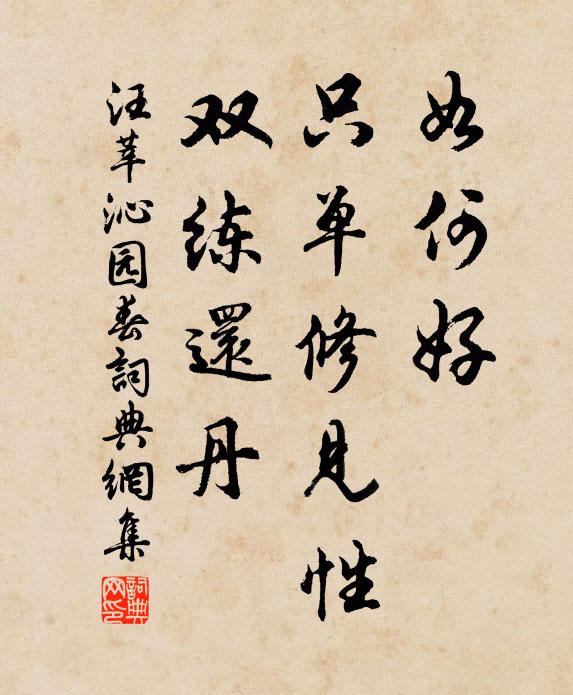 如何好
只单修见性
双练還丹
汪莘沁园春詞典網集
詞典网印